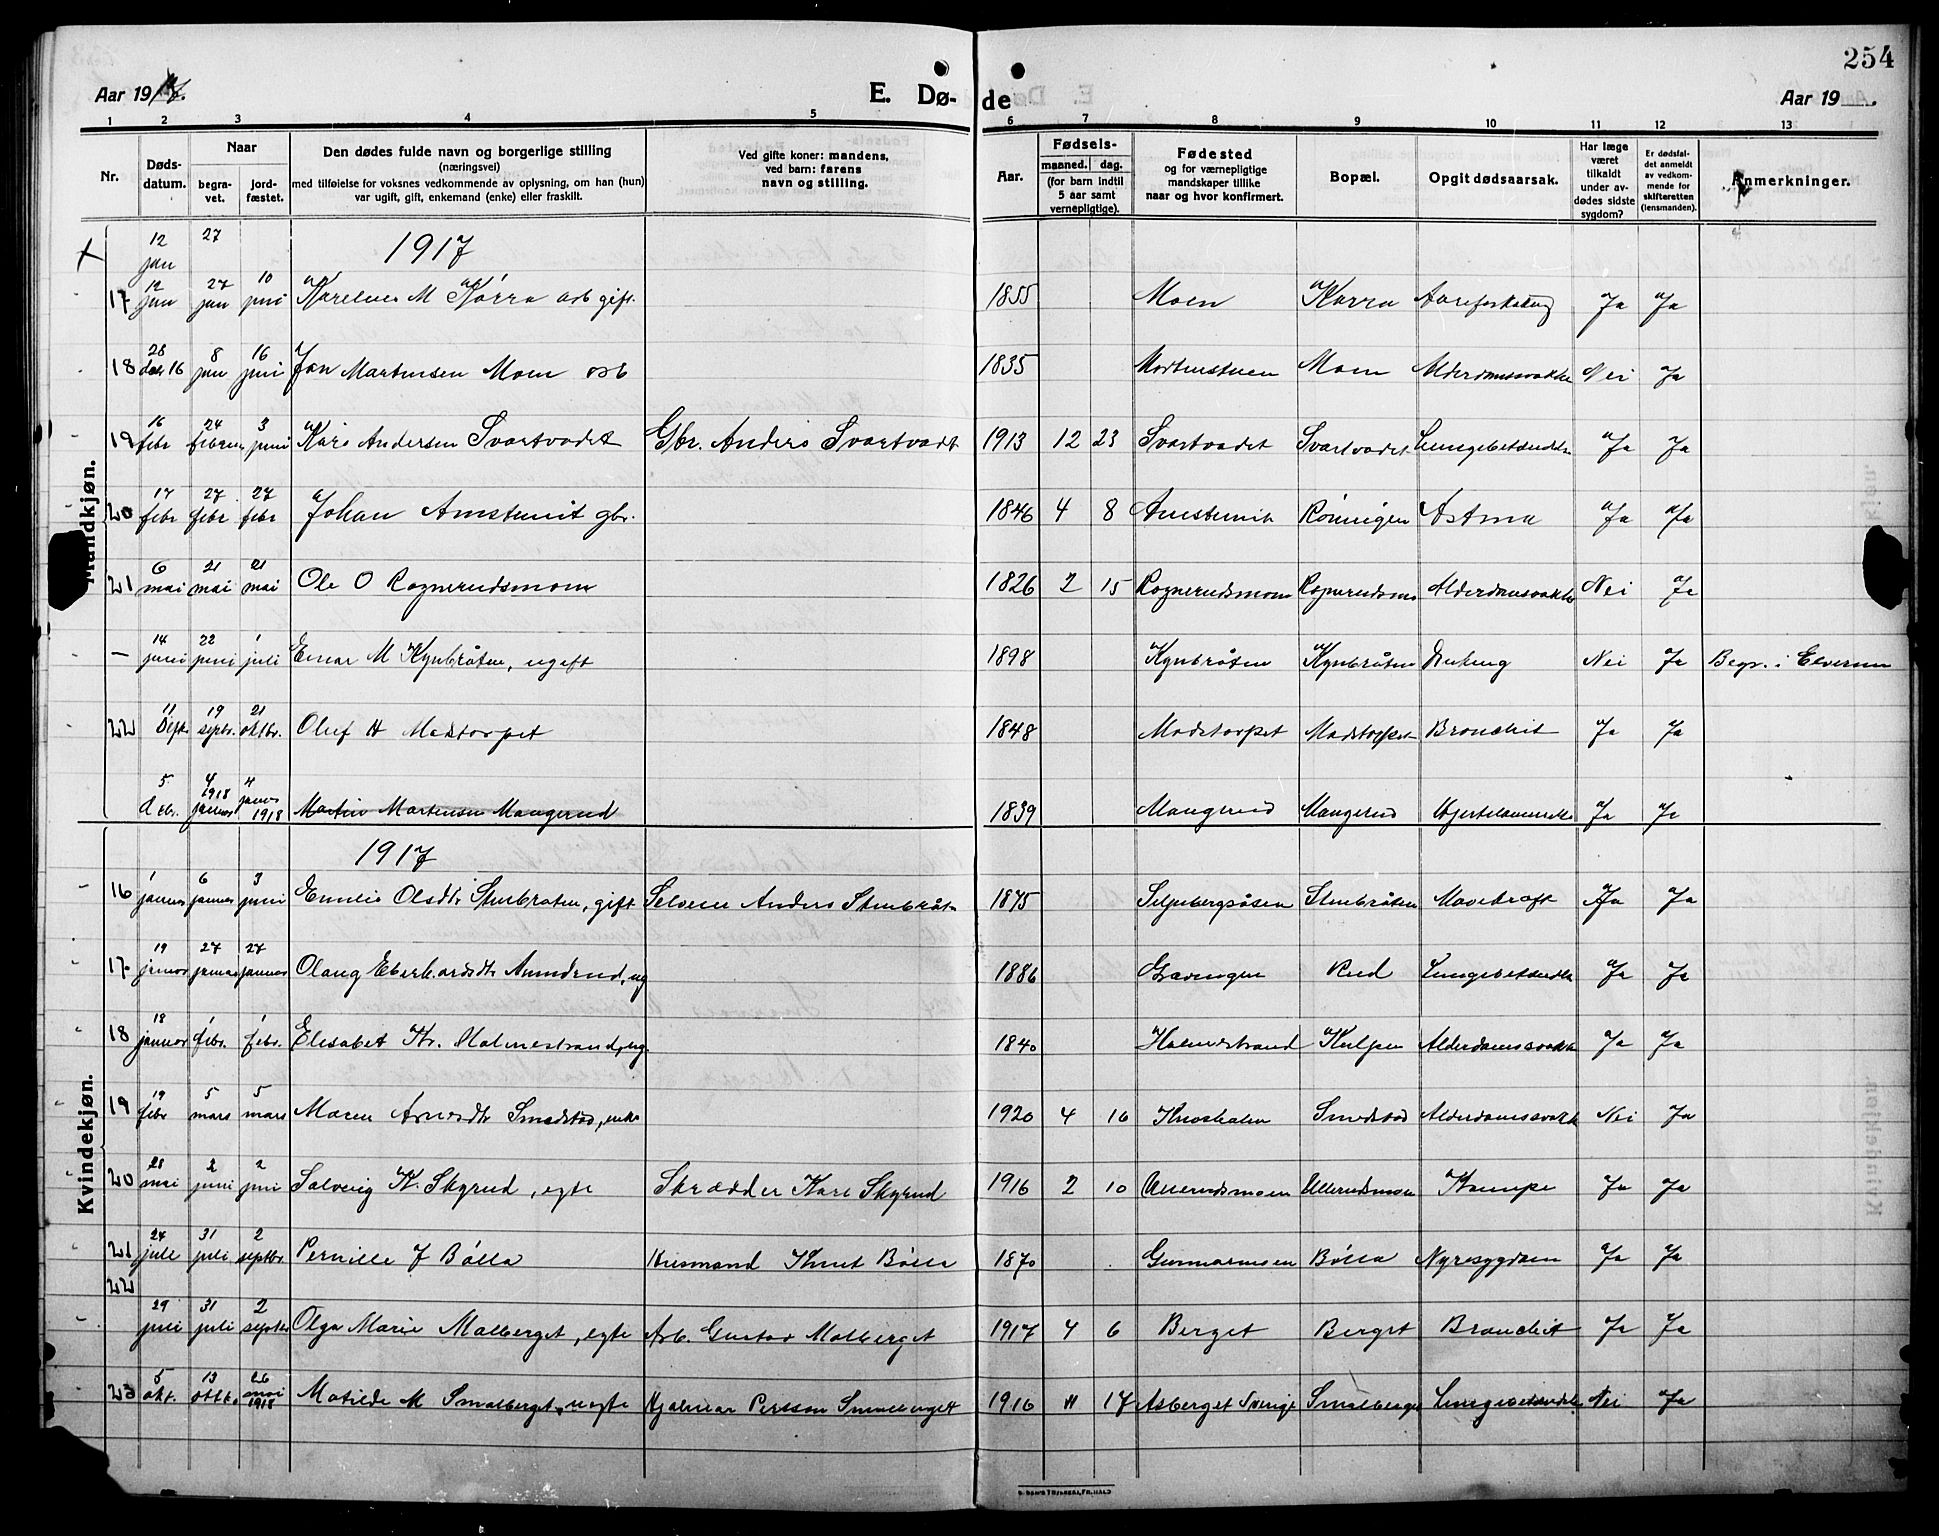 254
Aar 19
E. Dø-
de
Aar 19
1 2 3 4 5 6 7 8 9 10 11 12 13
Nr.
Døds-
datum.
Naar
begra-
vet.
jord-
fæstet.
Den dødes fulde navn og borgerlige stilling
(næringsvei)
med tilføielse for voksnes vedkommende av oplysning, om han (hun)
var ugift, gift, enkemand (enke) eller fraskilt.
Ved gifte koner: mandens,
ved barn: farens
navn og stilling.
Aar.
Fødsels-
maaned. dag.
(for barn indtil
5 aar samt
vernepligtige).
Fødested
og for værnepligtige
mandskaper tillike
naar og hvor konfirmert.
Bopæl.
Opgit dødsaarsak.
Har læge
været
tilkaldt
under av-
dødes sidste
sygdom?
Er dødsfal-
det anmeldt
av vedkom-
mende for
skifteretten
(lensmanden).
Anmerkninger.
Mandkjøn.
12 jan 27 1917
17 12 jan 27 jan 10 juni M Kørra arb gift. 1855 Moen Ja Ja
18 28 16 8 jan 16 juni Jon Martinsen Moen arb 1835 Moen Nei Ja
19 16 febr 24 3 juni Kåre Andersen Svartvadet Gbr. Anders Svartvadt 1913 12 23 Svartvadet Svartvadet Ja Ja
20 17 febr 27 febr 27 febr Johan gbr. 1846 4 8 Rønningen Astma Ja Ja
21 6 mai 21 mai 21 mai Ole O Rognerudsmoen 1826 2 15 Rognerudsmoen Nei Ja
– 14 juni 22 juni 1 juli Einar M Kynbråten, ugift 1898 Kynbråten Kynbråten Nei Ja Begr. i Elverum
22 11 sept. 19 septbr. 21 oktbr. Oluf H Madstorpet 1848 Madstorpet Madstorpet Bronchit Ja Ja
5 4 1918 januar 4 januar 1918 Martin Martinsen Mangerud 1839 Mangerud Mangerud Ja Ja
Kvindekjøn.
1917
16 1 januar 6 januar 3 juni Emilie Olsdtr Stenbråten, gift Selveier Anders Stenbråten 1875 Stenbråten Mavekræft Ja Ja
17 19 januar 27 januar 27 januar Olaug Eberhardsdtr ug 1886 Rud Ja Ja
18 18 januar 1 febr. 1 febr. Elisabet Kr. Holmestrand, ug. 1840 Holmestrand Ja Ja
19 19 febr 5 mars 5 mars Maren Smedstad, enke 1920 4 16 Smedstad Nei Ja
20 28 mai 2 juni 2 juni Solveig K. Skyrud, egte Skrædder Kare Skyrud 1916 2 10 Krampe Ja Ja
21 24 juli 31 juli 2 septbr. Pernille J Bølla Husmand Knut Bølla 1870 Bølla Nyresygdom Ja Ja
22 29 juli 31 juli 2 septbr Olga Marie Malberget, egte Arb. Gustav Malberget 1917 4 6 Berget Berget Bronchit Ja Ja
23 5 okt. 13 oktbr. 26 mai 1918 Matilde M Smalberget, uegte Hjalmar Persson Smalberget 1916 4 17 Asberget Sverige Smalberget Nei Ja